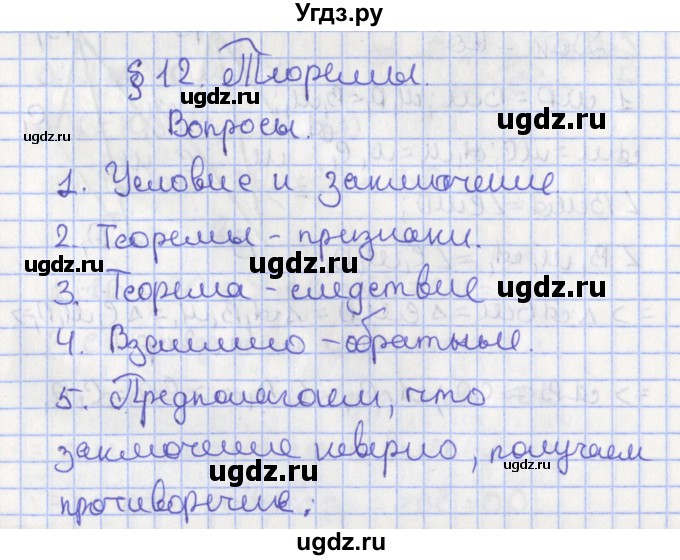 Угдз.ру
§ 12 Теоремы.
ugdz.ru ugdz.ru
Вопросы.
ugdz.ru
1. Условие и заключение
2. Теоремы - признаки.
ugdz.ru ugdz.ru ugdz.ru
3. Теорема - следствие
4. Взаимно - обратные.
ugdz.ru
5. Предполагаем, что
заключение неверно, получаем
ugdz.ru
противоречие;
ugdz.ru ugdz.ru